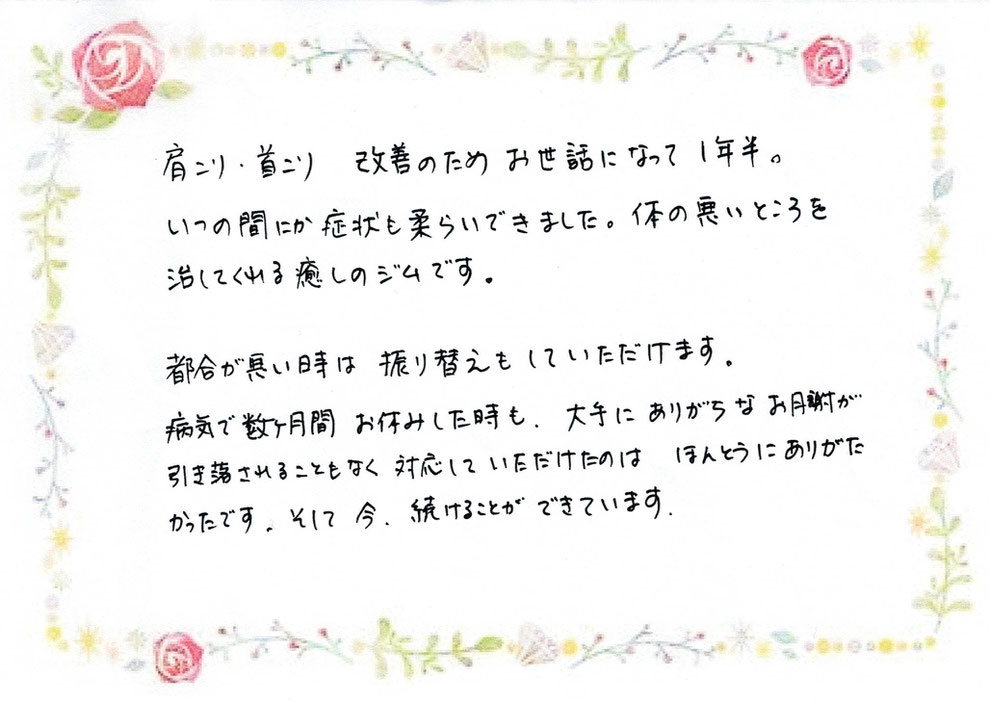 肩こり・首こり 改善のため お世話になって 1年半。
いつの間にか症状も柔らいできました。体の悪いところを
治してくれる癒しのジムです。
都合が悪い時は 振り替えもしていただけます。
病気で数ヶ月間 お休みした時も、大手に ありがちな お月謝が
引き落されることもなく 対応して いただけたのは ほんとうにありがた
かったです。そして 今、続けることが できています.